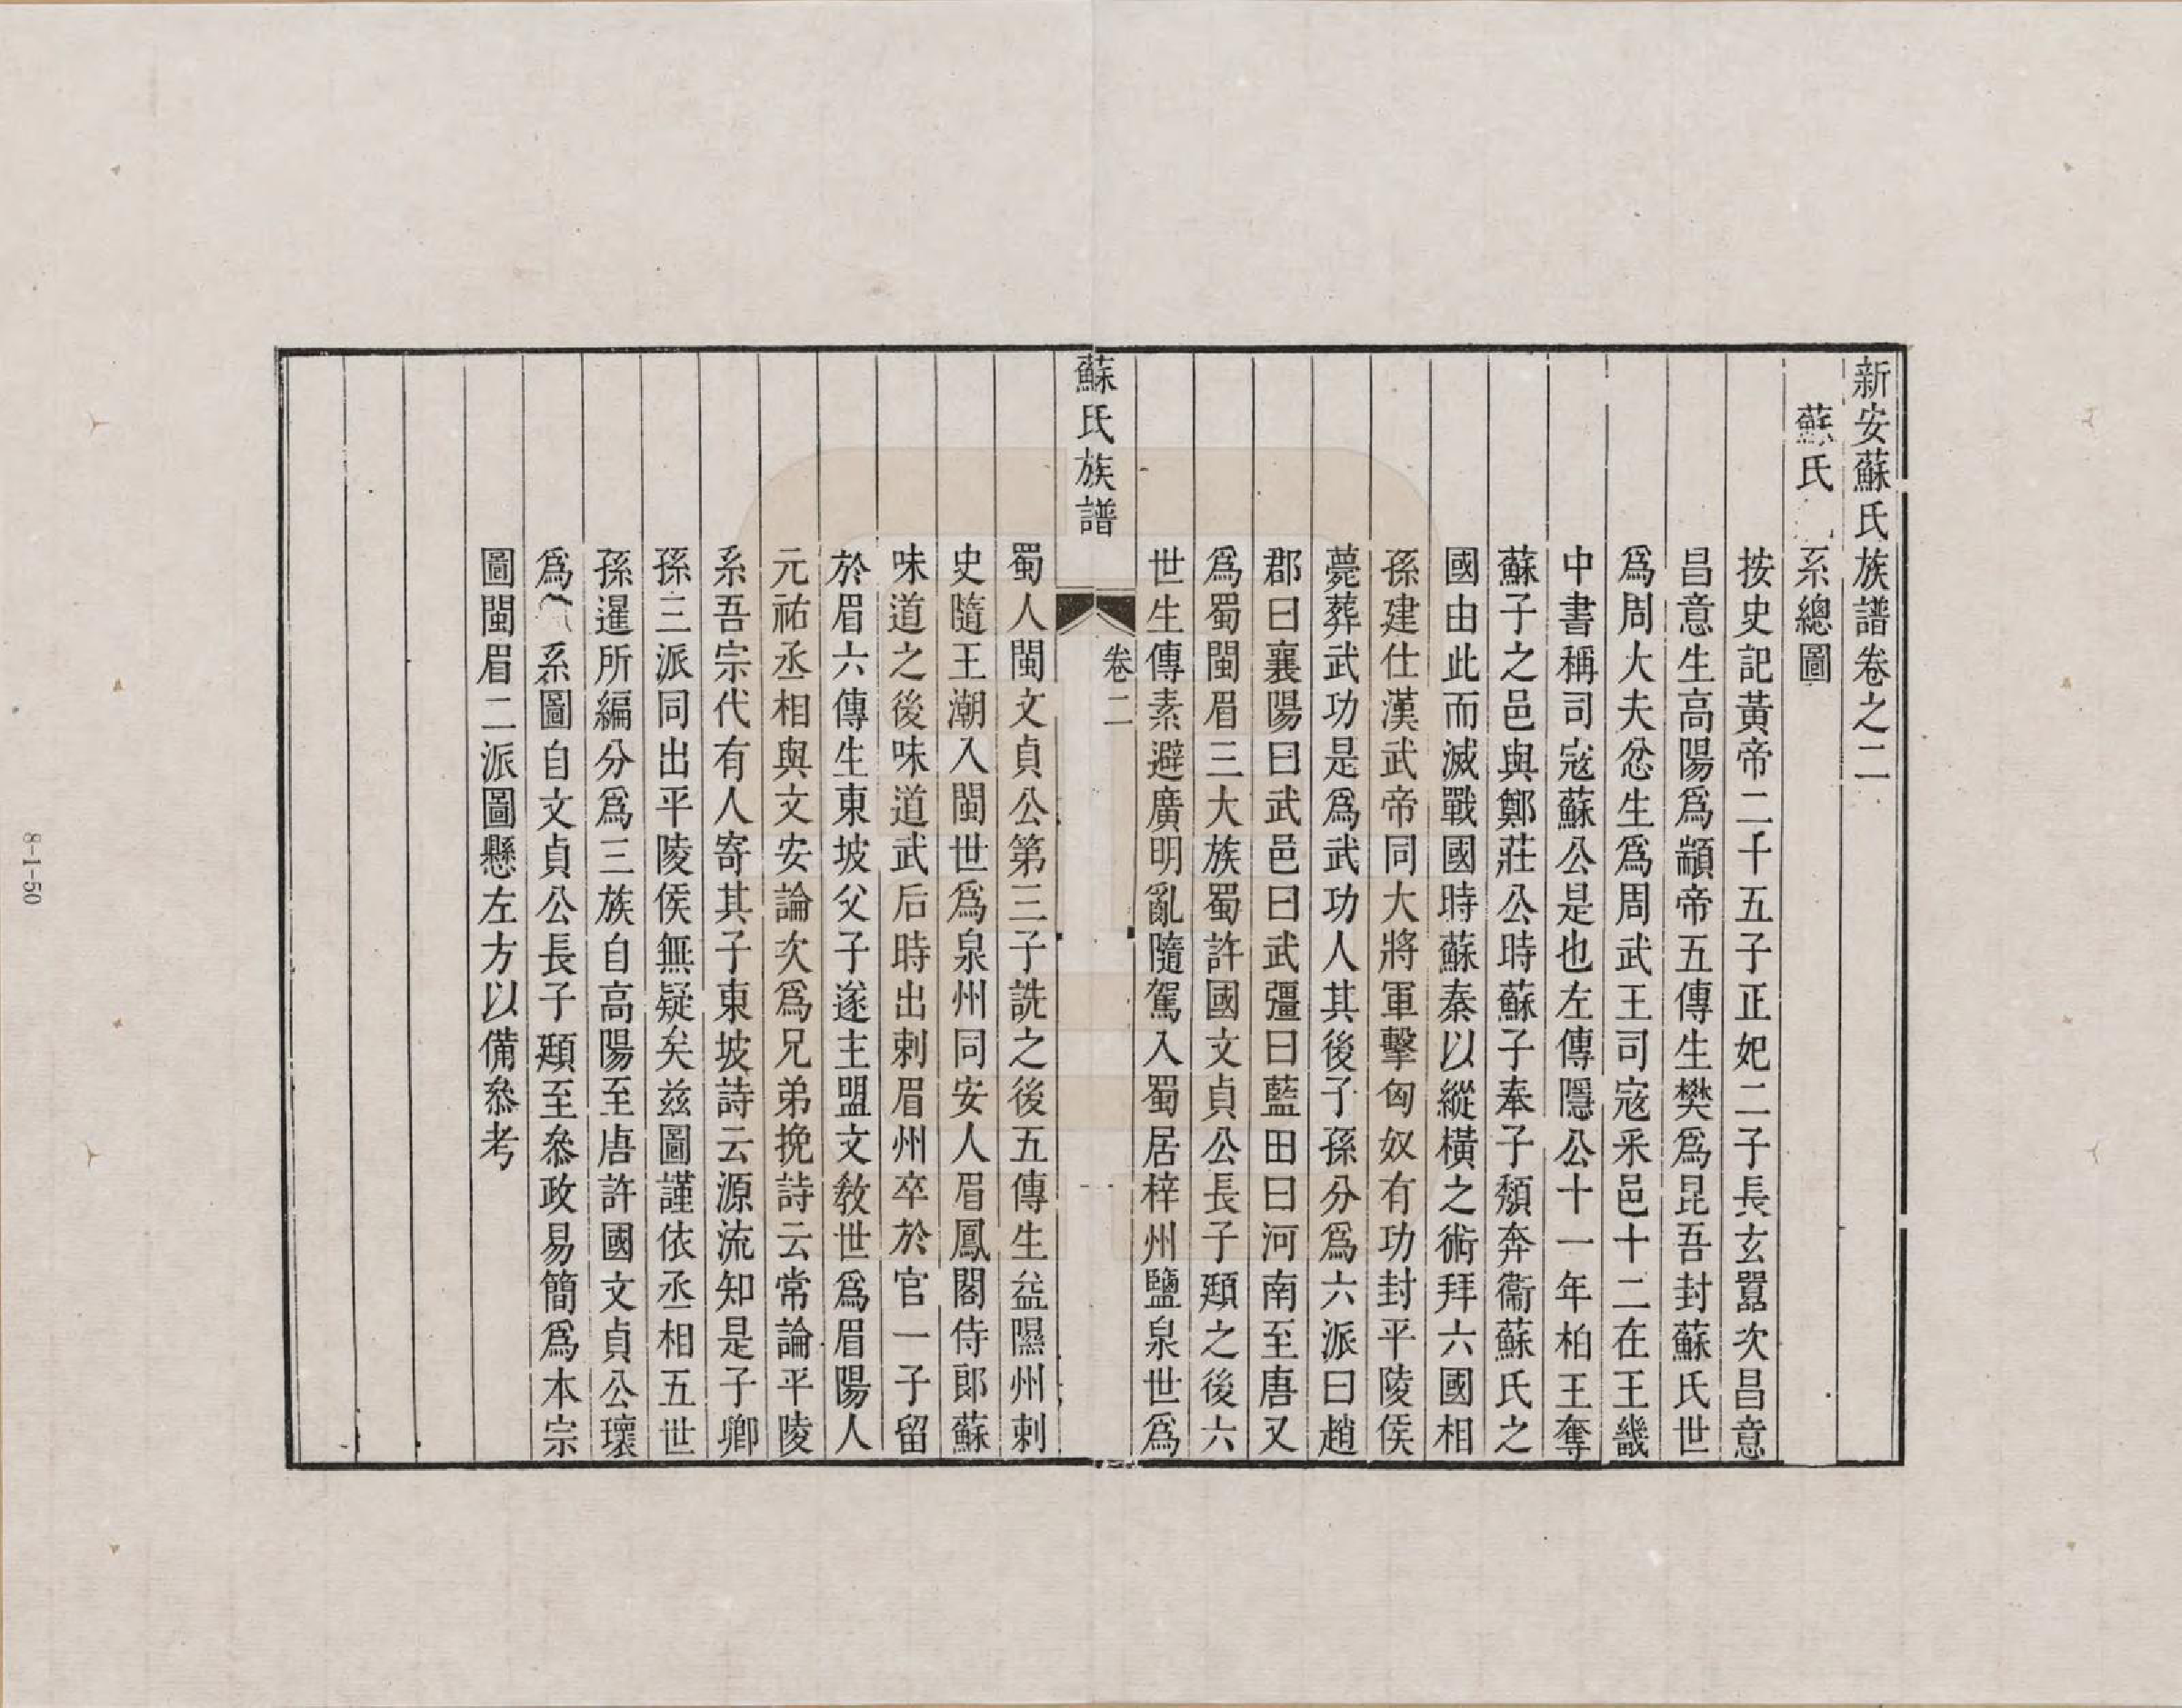 新安蘇氏族譜卷之二
蘇氏系總圖
按史記黃帝二千五子正妃二子長玄囂次昌意
昌意生高陽爲顓帝五傳生樊爲昆吾封蘇氏世
爲周大夫忿生爲周武王司寇采邑十二在王畿
中書稱司寇蘇公是也左傳隱公十一年桓王奪
蘇子之邑與鄭莊公時蘇子奉子頹奔衞蘇氏之
國由此而滅戰國時蘇秦以縱橫之術拜六國相
孫建仕漢武帝同大將軍擊匈奴有功封平陵侯
薨葬武功是爲武功人其後子孫分爲六派曰趙
郡曰襄陽曰武邑曰武彊曰藍田曰河南至唐又
爲蜀閩眉三大族蜀許國文貞公長子頲之後六
世生傳素避廣明亂隨駕入蜀居梓州鹽泉世爲
蘇氏族譜
卷二
蜀人閩文貞公第三子詵之後五傳生益隰州刺
史隨王潮入閩世爲泉州同安人眉鳳閣侍郎蘇
味道之後味道武后時出刺眉州卒於官一子留
於眉六傳生東坡父子遂主盟文敎世爲眉陽人
元祐丞相與文安論次爲兄弟挽詩云常論平陵
系吾宗代有人寄其子東坡詩云源流知是子卿
孫三派同出平陵侯無疑矣茲圖謹依丞相五世
孫暹所編分爲三族自高陽至唐許國文貞公瓌
爲系圖自文貞公長子頲至叅政易簡爲本宗
圖閩眉二派圖懸左方以備叅考
8-1-50